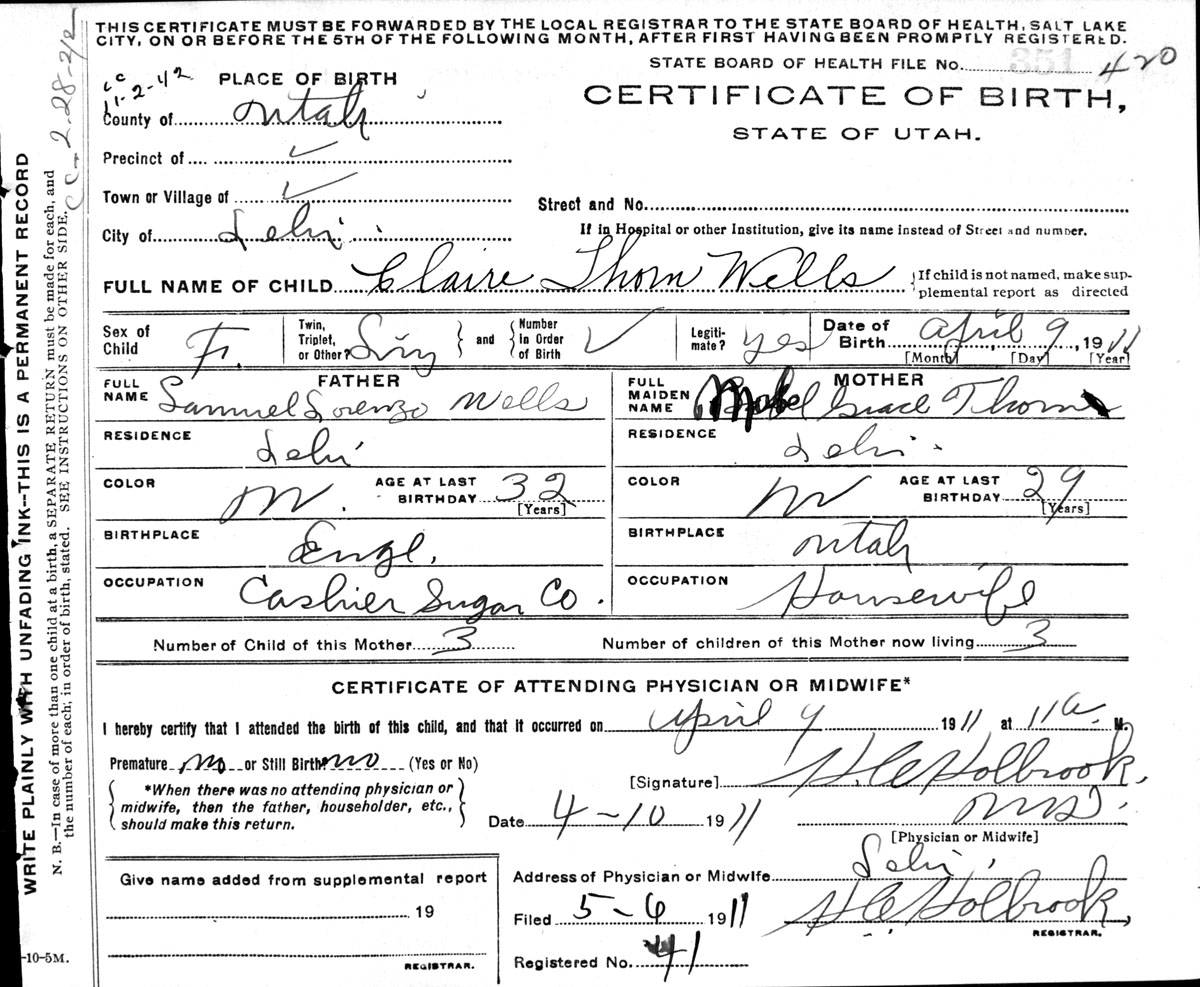 THIS CERTIFICATE MUST BE FORWARDED BY THE LOCAL REGISTRAR TO THE STATE BOARD OF HEALTH, SALT LAKE
CITY, ON OR BEFORE THE 5TH OF THE FOLLOWING MONTH, AFTER FIRST HAVING BEEN PROMPTLY REGISTERED.
STATE BOARD OF HEALTH FILE No. 351 420
11-2-42 PLACE OF BIRTH
CERTIFICATE OF BIRTH,
STATE OF UTAH.
County of Utah
Precinct of ✓
Town or Village of ✓
Street and No.
City of Lehi
If in Hospital or other Institution, give its name instead of Street and number.
FULL NAME OF CHILD Claire Thorn Wells
{If child is not named, make sup-
plemental report as directed
Sex of Child F.
Twin, Triplet, or Other? Sing } and { Number in Order of Birth ✓
Legiti-mate? yes
Date of Birth April 9, 1911
[Month] [Day] [Year]
FATHER
FULL NAME Samuel Lorenzo Wells
MOTHER
FULL MAIDEN NAME Mabel Grace Thorn
RESIDENCE Lehi
RESIDENCE Lehi
COLOR W. AGE AT LAST BIRTHDAY 32 [Years]
COLOR W AGE AT LAST BIRTHDAY 29 [Years]
BIRTHPLACE Engl.
BIRTHPLACE Utah
OCCUPATION Cashier Sugar Co.
OCCUPATION Housewife
Number of Child of this Mother 3 Number of children of this Mother now living 3
CERTIFICATE OF ATTENDING PHYSICIAN OR MIDWIFE*
I hereby certify that I attended the birth of this child, and that it occurred on April 9 1911 at 11 a. M.
Premature no or Still Birth no (Yes or No)
[Signature] H.C. Holbrook,
M.D.
[Physician or Midwife]
{*When there was no attending physician or
midwife, then the father, householder, etc.,
should make this return.}
Date 4-10 1911
Address of Physician or Midwife Lehi,
Filed 5-6 1911 H.C. Holbrook,
REGISTRAR.
Registered No. 41
Give name added from supplemental report
19
REGISTRAR.
WRITE PLAINLY WITH UNFADING INK--THIS IS A PERMANENT RECORD
N. B.—In case of more than one child at a birth, a SEPARATE RETURN must be made for each, and
the number of each; in order of birth, stated. SEE INSTRUCTIONS ON OTHER SIDE.
CC-2-28-
-10-5M.